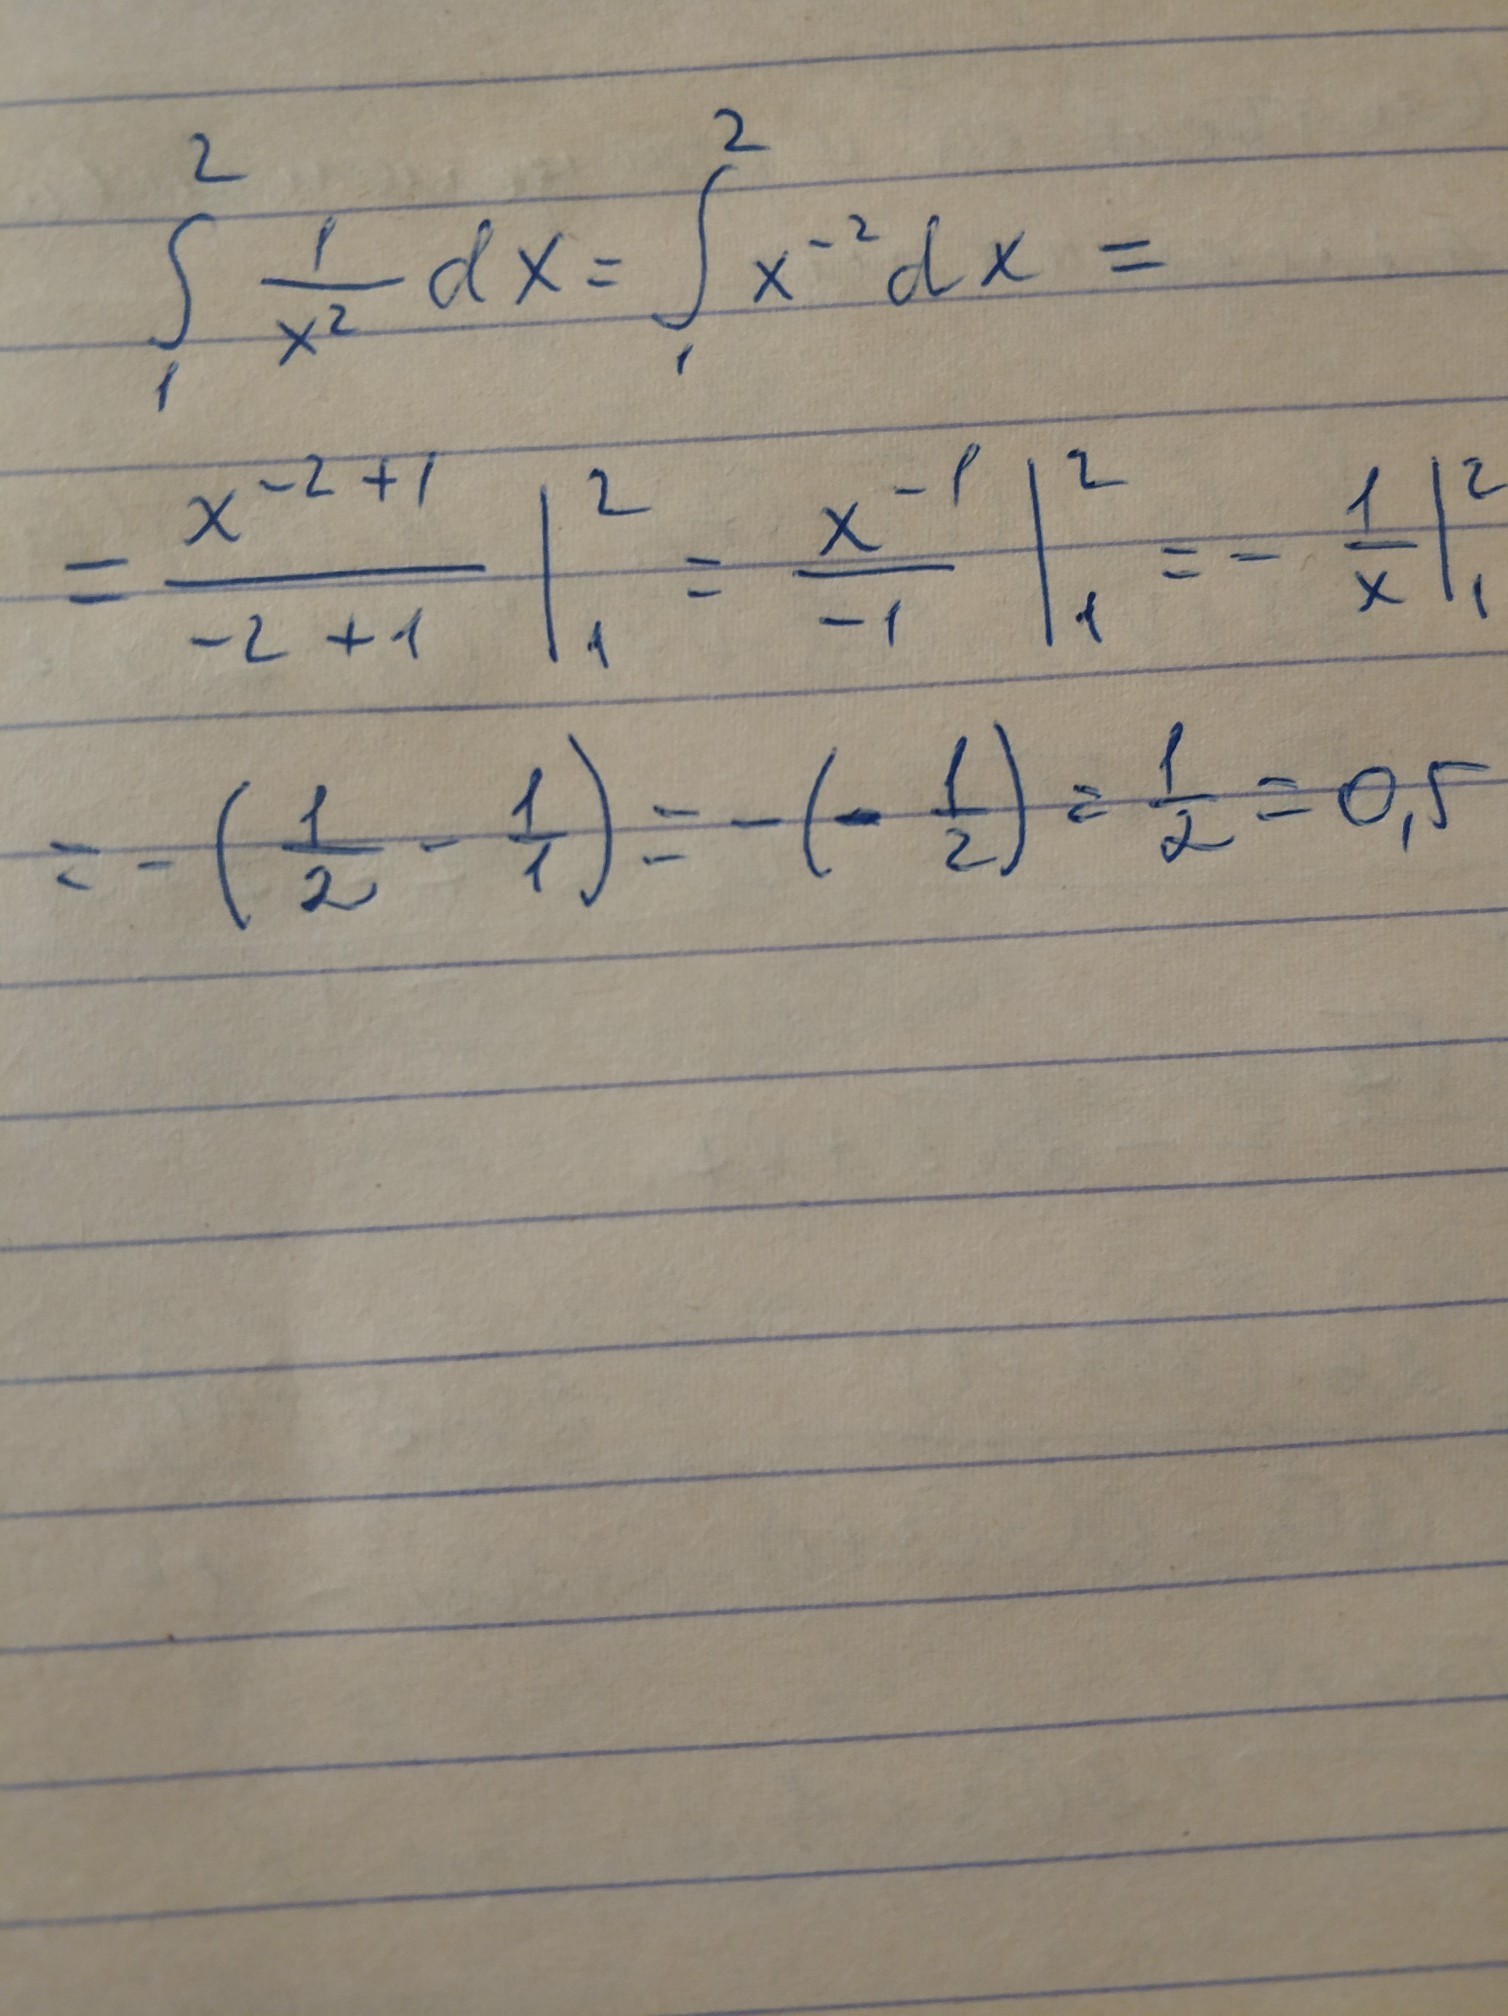 ∫₁² 1/x² dx = ∫₁² x⁻² dx =
= x⁻²⁺¹/(-2+1) |₁² = x⁻¹/-1 |₁² = - 1/x |₁²
= - (1/2 - 1/1) = - (- 1/2) = 1/2 = 0,5